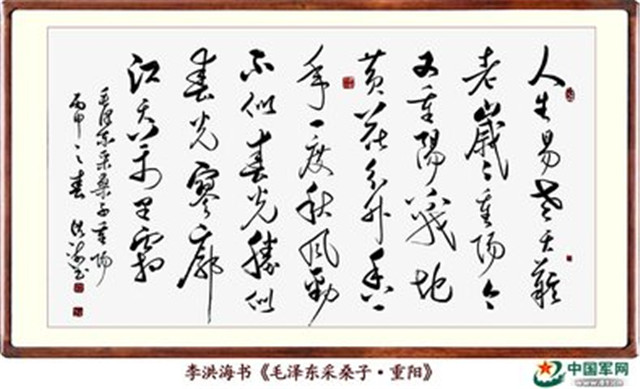 人生易老天難
老歲々重陽今
又重陽戰地
黄花分外香一
年一度秋風勁
不似春光勝似
春光寥廓
江天万里霜
毛泽东采桑子重陽
丙申之春 洪海书
李洪海书《毛泽东采桑子·重阳》
中国军网
www.81.cn